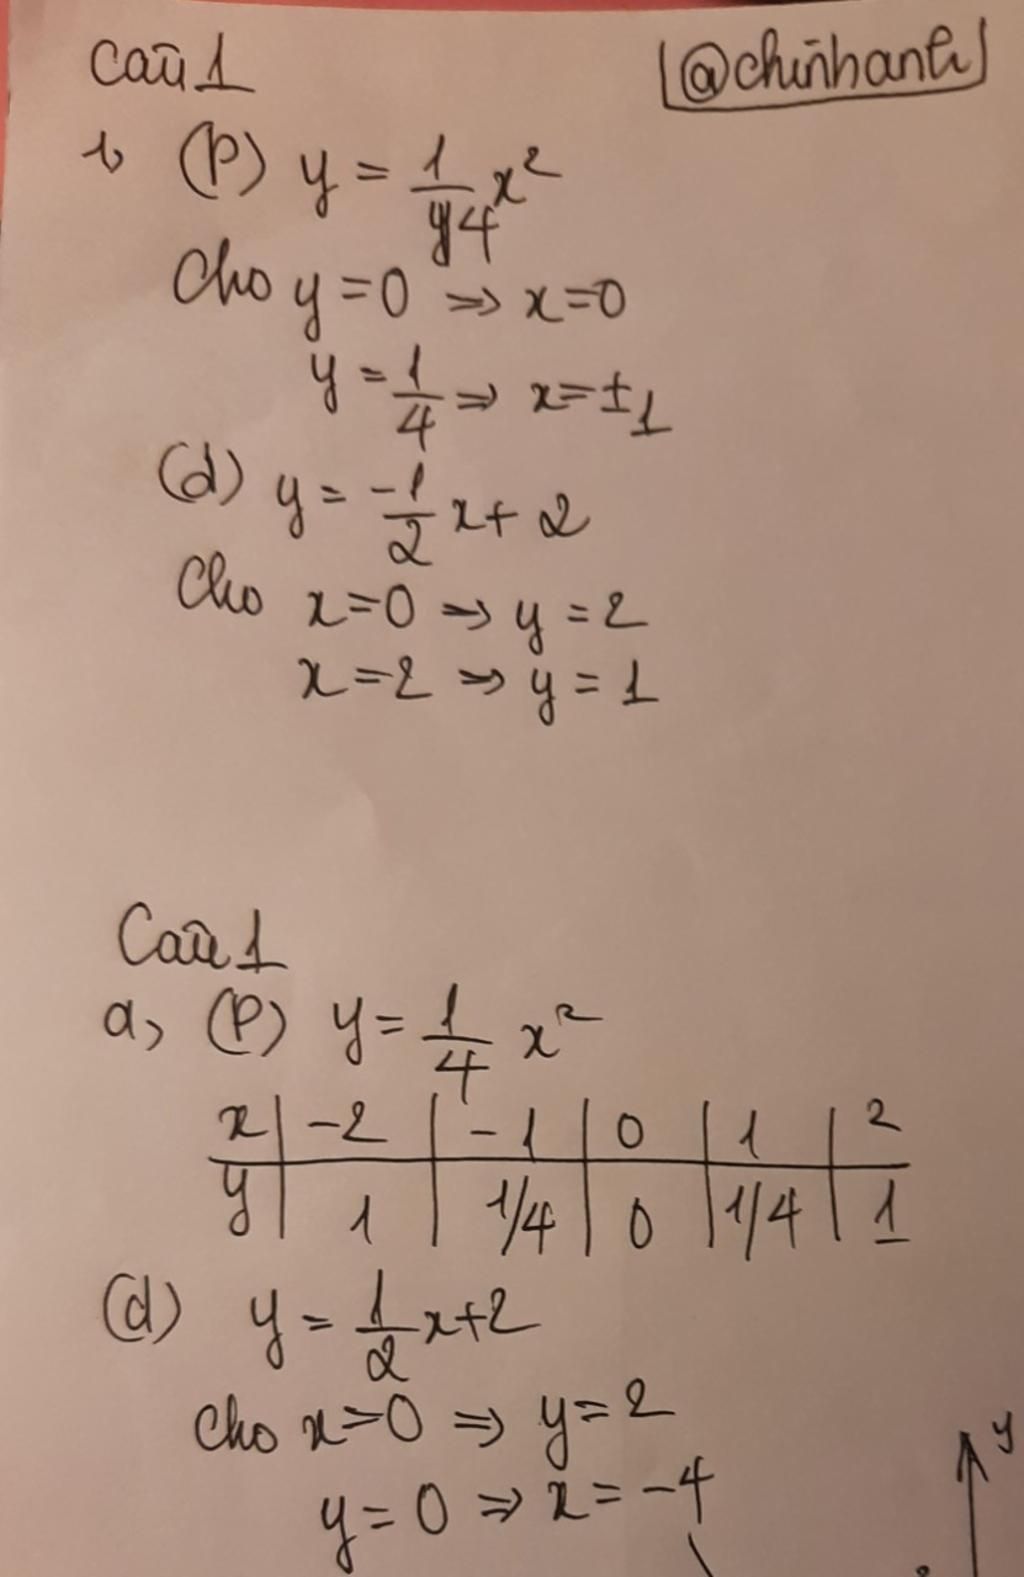 Câu 1
@chinhanh
b (P) y = 1/4 x²
Cho y = 0 => x = 0
y = 1/4 => x = ±1
(d) y = -1/2 x + 2
Cho x = 0 => y = 2
x = 2 => y = 1
Câu 1
a, (P) y = 1/4 x²
x | -2 | -1 | 0 | 1 | 2
y | 1 | 1/4 | 0 | 1/4 | 1
(d) y = 1/2 x + 2
Cho x = 0 => y = 2
y = 0 => x = -4
y